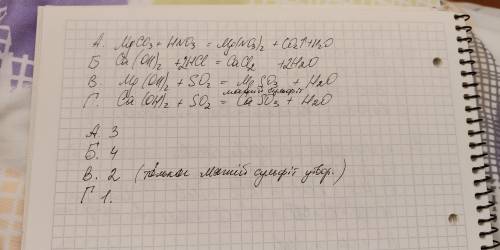 А. MgCO3 + HNO3 = Mg(NO3)2 + CO2↑+H2O
Б Ca(OH)2 +2HCl = CaCl2 +2H2O
В. Mg(OH)2 + SO2 = MgSO3 + H2O
магній сульфіт
Г. Ca(OH)2 + SO2 = CaSO3 + H2O
А. 3
Б. 4
В. 2 (тільки магній сульфіт утвор.)
Г 1.